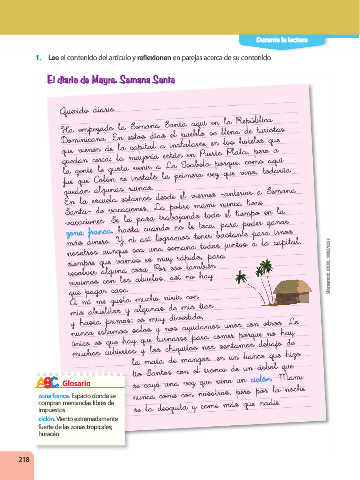 Durante la lectura
1. Lee el contenido del artículo y reflexionen en parejas acerca de su contenido.
El diario de Mayra. Semana Santa
Querido diario:
Ha empezado la Semana Santa aquí en la República
Dominicana. En estos días el pueblo se llena de turistas
que vienen de la capital a instalarse en los hoteles que
quedan cerca; la mayoría están en Puerto Plata, pero a
la gente le gusta venir a La Isabela porque, como aquí
fue que Colón se instaló la primera vez que vino, todavía
quedan algunas ruinas.
En la escuela estamos desde el viernes -anterior a Semana
Santa- de vacaciones. La pobre mami nunca tiene
vacaciones. Se la pasa trabajando todo el tiempo en la
zona franca, hasta cuando no le toca, para poder ganar
más dinero. Y ni así logramos tener bastante para irnos
nosotros aunque sea una semana todos juntos a la capital.
Siempre que vamos es muy rápido, para
resolver alguna cosa. Por eso también
vivimos con los abuelos, así no hay
que pagar casa.
A mí me gusta mucho vivir con
mis abuelitos y algunos de mis tías
y hasta primos: es muy divertido,
nunca estamos solos y nos ayudamos unos con otros. Lo
único es que hay que turnarse para comer porque no hay
muchos cubiertos y los chiquitos nos sentamos debajo de
la mata de mangos, en un banco que hizo
tío Santos con el tronco de un árbol que
se cayó una vez que vino un ciclón. Mami
nunca come con nosotros, pero por la noche
se la desquita y come más que nadie.
ABC Glosario
zona franca. Espacio donde se
compran mercancías libres de
impuestos.
ciclón. Viento extremadamente
fuerte de las zonas tropicales;
huracán.
218